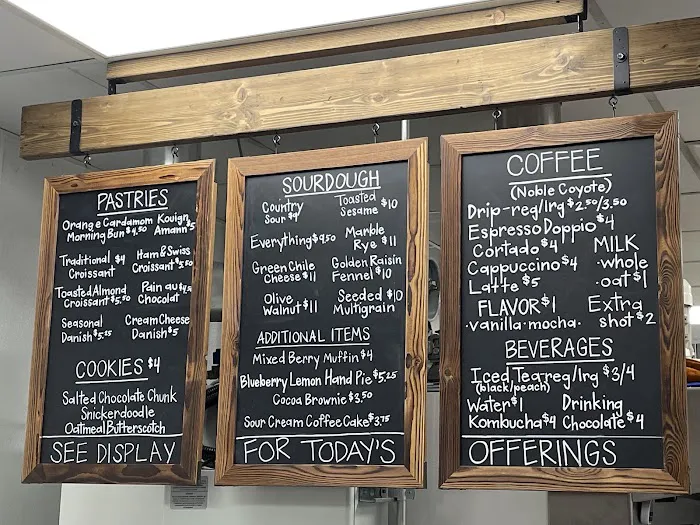 PASTRIES
Orange Cardamom Morning Bun $4.50
Kouign Amann $5
Traditional Croissant $4
Ham & Swiss Croissant $5.50
Toasted Almond Croissant $5.50
Pain au Chocolat $4.50
Seasonal Danish $5.25
Cream Cheese Danish $5
COOKIES $4
Salted Chocolate Chunk
Snickerdoodle
Oatmeal Butterscotch
SEE DISPLAY
SOURDOUGH
Country Sour $9
Toasted Sesame $10
Everything $9.50
Marble Rye $11
Green Chile Cheese $11
Golden Raisin Fennel $10
Olive Walnut $11
Seeded Multigrain $10
ADDITIONAL ITEMS
Mixed Berry Muffin $4
Blueberry Lemon Hand Pie $5.25
Cocoa Brownie $3.50
Sour Cream Coffee Cake $3.75
FOR TODAY'S
COFFEE
(Noble Coyote)
Drip-reg/lrg $2.50/3.50
Espresso Doppio $4
Cortado $4
Cappuccino $4
Latte $5
MILK
·whole
·oat $1
FLAVOR $1
·vanilla·mocha·
Extra shot $2
BEVERAGES
Iced Tea-reg/lrg $3/4
(black/peach)
Water $1
Kombucha $4
Drinking Chocolate $4
OFFERINGS